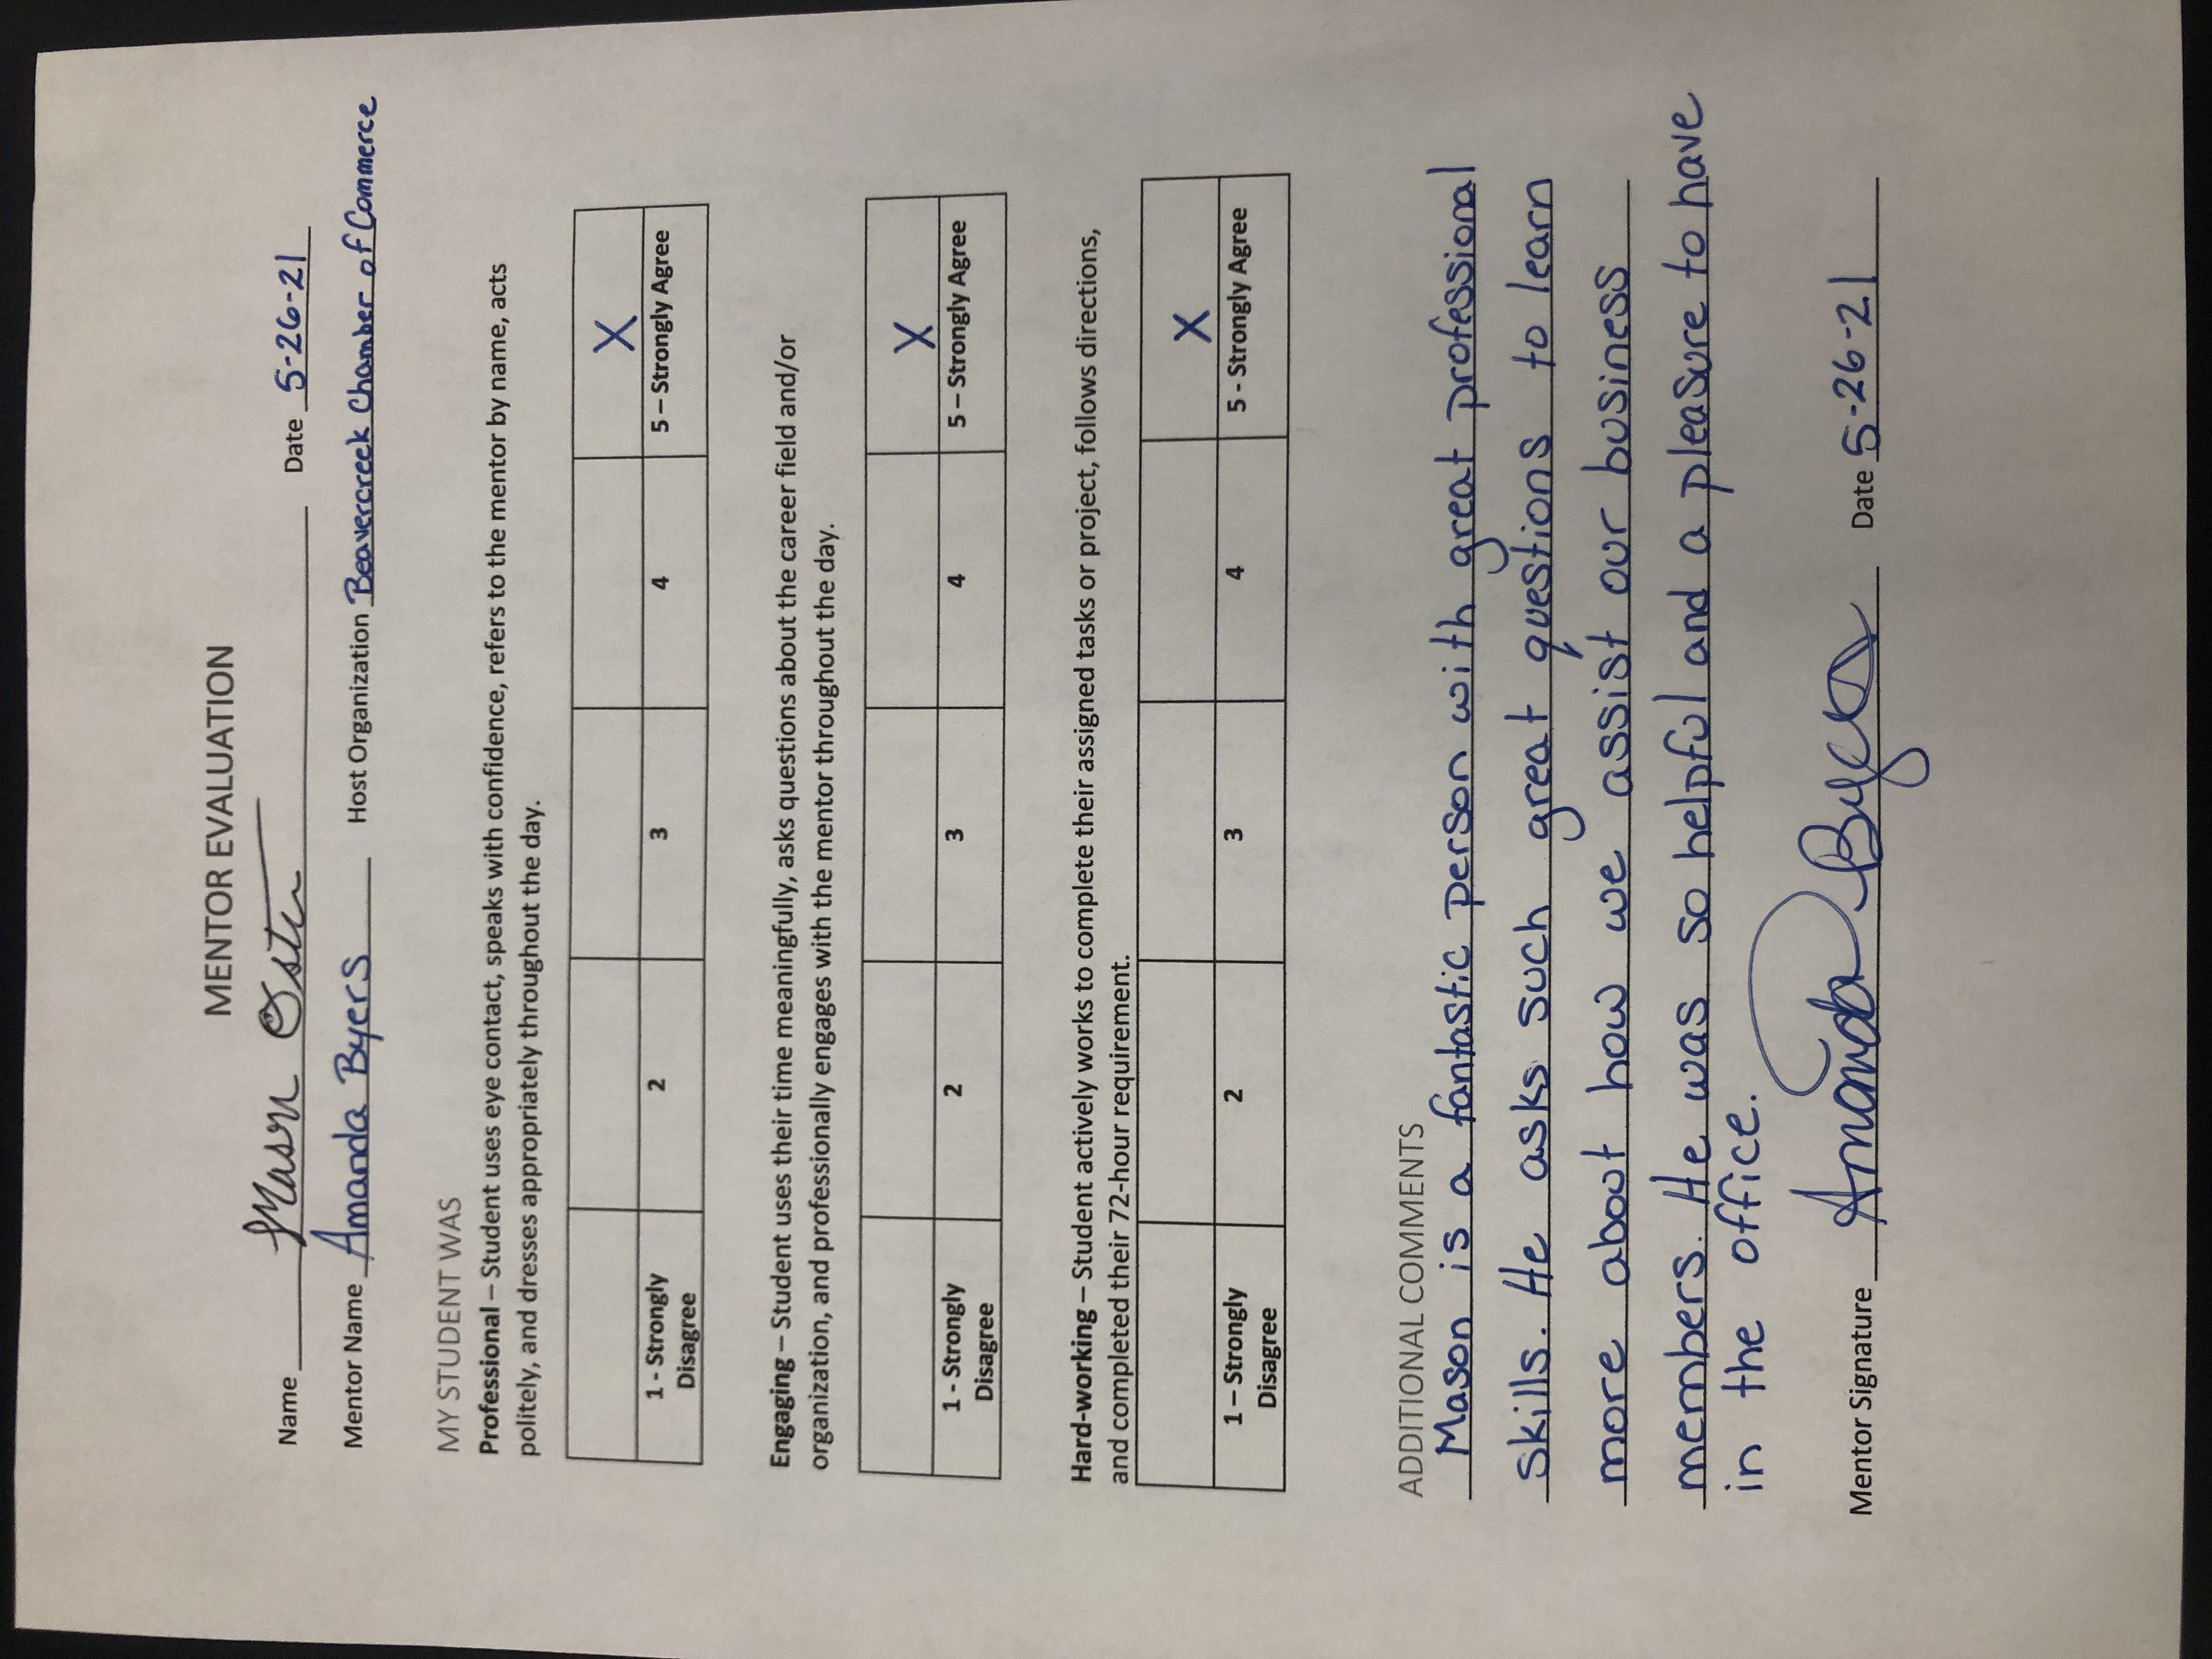 MENTOR EVALUATION
Name Mason Oster Date 5-26-21
Mentor Name Amanda Byers Host Organization Beavercreek Chamber of Commerce
MY STUDENT WAS
Professional – Student uses eye contact, speaks with confidence, refers to the mentor by name, acts
politely, and dresses appropriately throughout the day.
X
1 - Strongly Disagree 2 3 4 5 – Strongly Agree
Engaging – Student uses their time meaningfully, asks questions about the career field and/or
organization, and professionally engages with the mentor throughout the day.
X
1 - Strongly Disagree 2 3 4 5 – Strongly Agree
Hard-working – Student actively works to complete their assigned tasks or project, follows directions,
and completed their 72-hour requirement.
X
1 – Strongly Disagree 2 3 4 5 - Strongly Agree
ADDITIONAL COMMENTS
Mason is a fantastic person with great professional
skills. He asks such great questions to learn
more about how we assist our business
members. He was so helpful and a pleasure to have
in the office.
Mentor Signature Amanda Byers Date 5-26-21